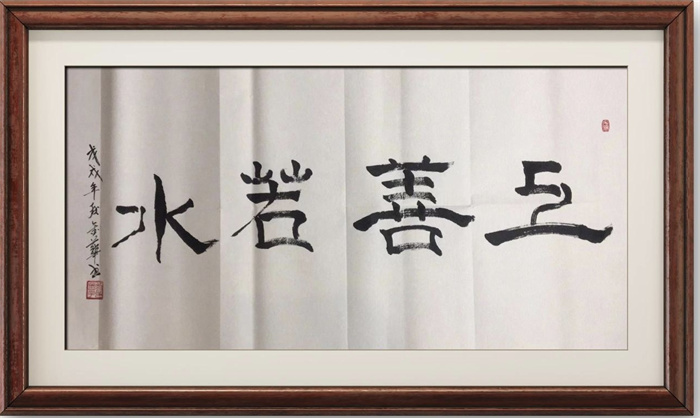 上善若水
戊戌年秋